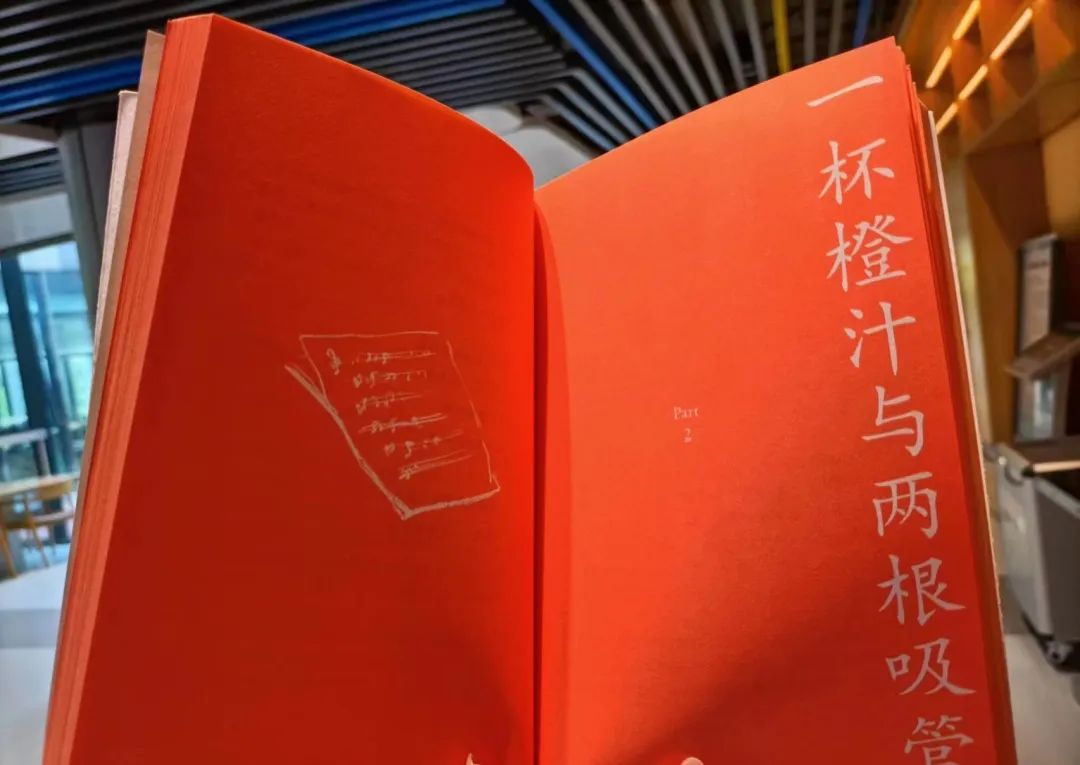 一杯橙汁与两根吸管
Part
2